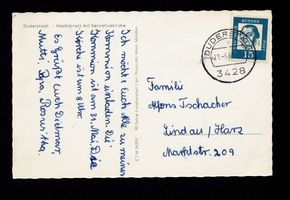 Duderstadt - Marktplatz mit Servatiuskirche
Ich möchte Euch alle zu meiner
Kommion einladen. Die
Kommion ist am 31. Mai. Die
Kirche ist um 8 Uhr.
Es grüßt Euch Dietmar,
Mutti, Papa, Roswitha.
DUDERSTADT
3428
15
Familie
Alfons Tschacher
Lindau / Harz
Marktstr. 209